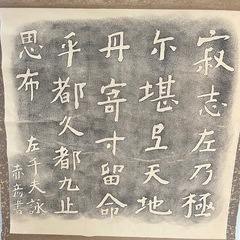 寂志左乃極
尓堪弖天地
丹寄寸留命
乎都久都九止
思布
左千夫詠
赤彦書